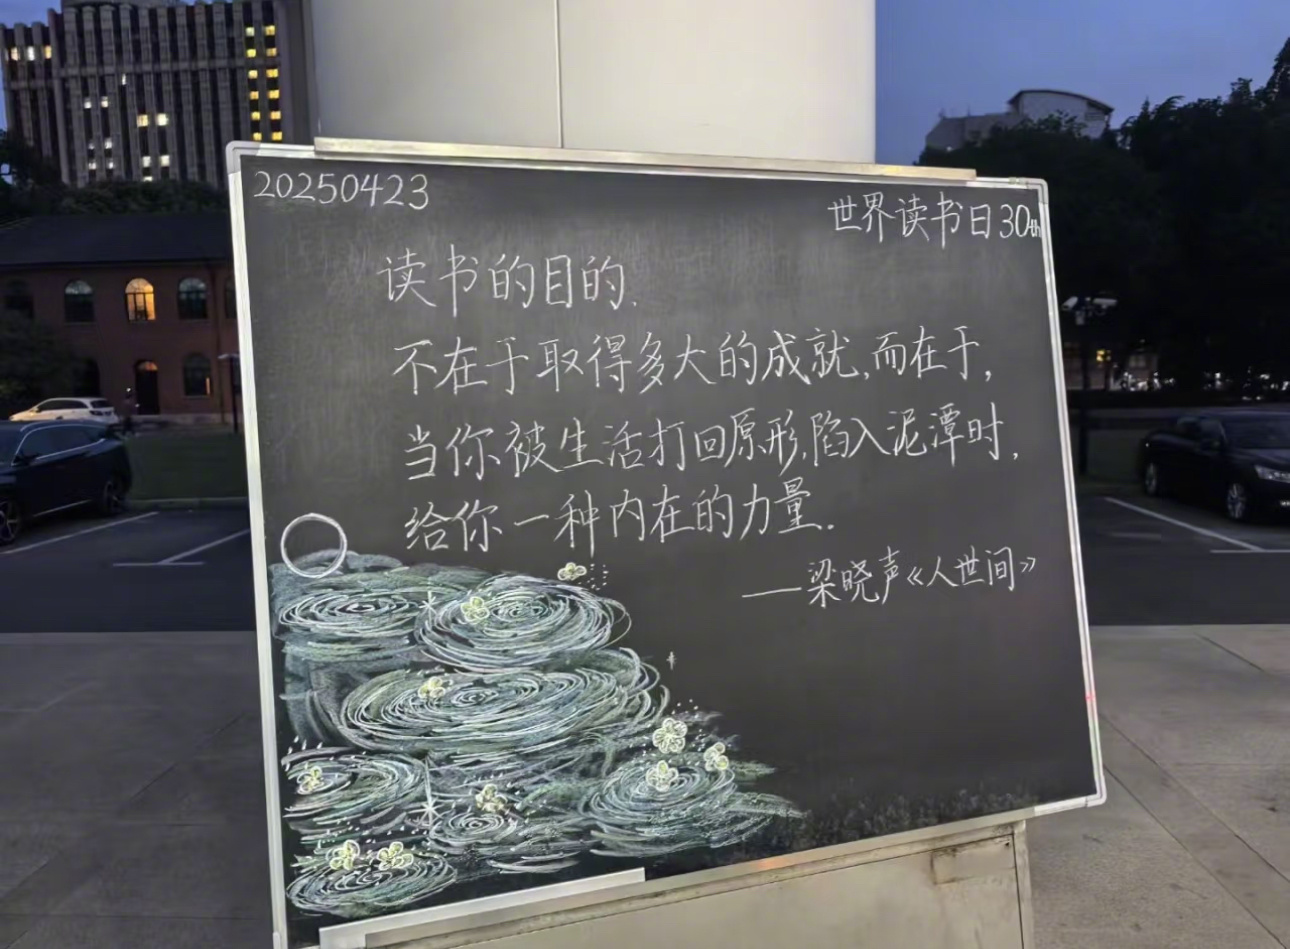 20250423
世界读书日30th
读书的目的.
不在于取得多大的成就,而在于,
当你被生活打回原形,陷入泥潭时,
给你一种内在的力量.
——梁晓声《人世间》